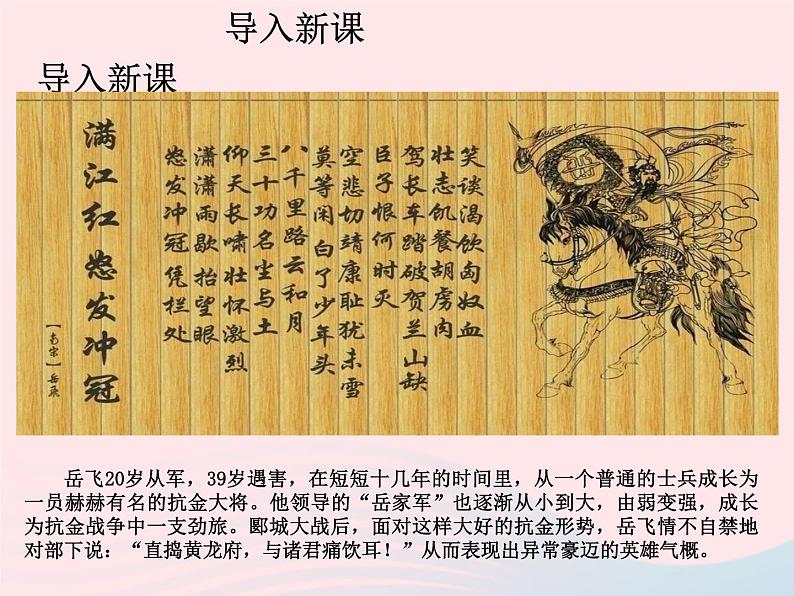 导入新课
导入新课
满江红 怒发冲冠
【南宋】岳飞
怒发冲冠凭栏处
潇潇雨歇 抬望眼
仰天长啸壮怀激烈
三十功名尘与土
八千里路云和月
莫等闲 白了少年头
空悲切靖康耻犹未雪
臣子恨何时灭
驾长车踏破贺兰山缺
壮志饥餐胡虏肉
笑谈渴饮匈奴血
岳飞20岁从军，39岁遇害，在短短十几年的时间里，从一个普通的士兵成长为
一员赫赫有名的抗金大将。他领导的“岳家军”也逐渐从小到大，由弱变强，成长
为抗金战争中一支劲旅。郾城大战后，面对这样大好的抗金形势，岳飞情不自禁地
对部下说：“直捣黄龙府，与诸君痛饮耳！”从而表现出异常豪迈的英雄气概。